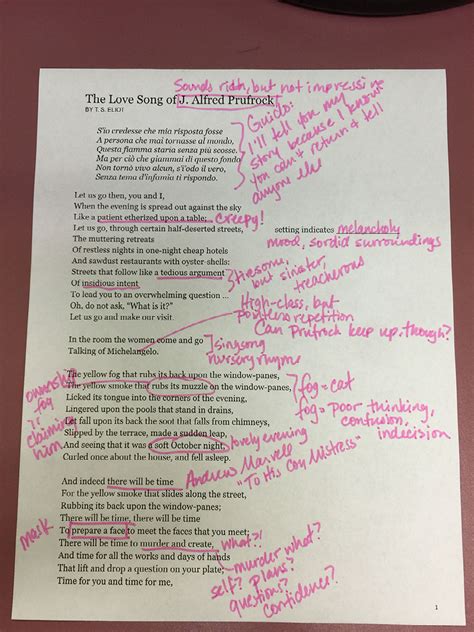 Sounds rich, but not impressive
The Love Song of J. Alfred Prufrock
BY T. S. ELIOT
Guido:
I'll tell you my
story because I know
you can't return & tell
anyone else
S'io credesse che mia risposta fosse
A persona che mai tornasse al mondo,
Questa fiamma staria senza più scosse.
Ma per ciò che giammai di questo fondo
Non tornò vivo alcun, s'i'odo il vero,
Senza tema d'infamia ti rispondo.
Let us go then, you and I,
When the evening is spread out against the sky
Like a patient etherized upon a table; creepy!
Let us go, through certain half-deserted streets,
setting indicates melancholy
mood, sordid surroundings
The muttering retreats
Of restless nights in one-night cheap hotels
And sawdust restaurants with oyster-shells:
Streets that follow like a tedious argument
Of insidious intent
tiresome,
but sinister,
treacherous
To lead you to an overwhelming question ...
Oh, do not ask, "What is it?"
Let us go and make our visit.
High-class, but
pointless repetition
Can Prufrock keep up, though?
In the room the women come and go
Talking of Michelangelo.
singsong
nursery rhyme
The yellow fog that rubs its back upon the window-panes,
The yellow smoke that rubs its muzzle on the window-panes,
fog = cat
Licked its tongue into the corners of the evening,
Lingered upon the pools that stand in drains,
fog = poor thinking,
confusion,
indecision
Let fall upon its back the soot that falls from chimneys,
Slipped by the terrace, made a sudden leap,
And seeing that it was a soft October night,
lovely evening
Curled once about the house, and fell asleep.
fog
claiming
him
Andrew Marvell
"To His Coy Mistress"
And indeed there will be time
For the yellow smoke that slides along the street,
Rubbing its back upon the window-panes;
There will be time, there will be time
mask
To prepare a face to meet the faces that you meet;
There will be time to murder and create, what?!
And time for all the works and days of hands
murder what?
That lift and drop a question on your plate;
self? plans?
question?
confidence?
Time for you and time for me,
1